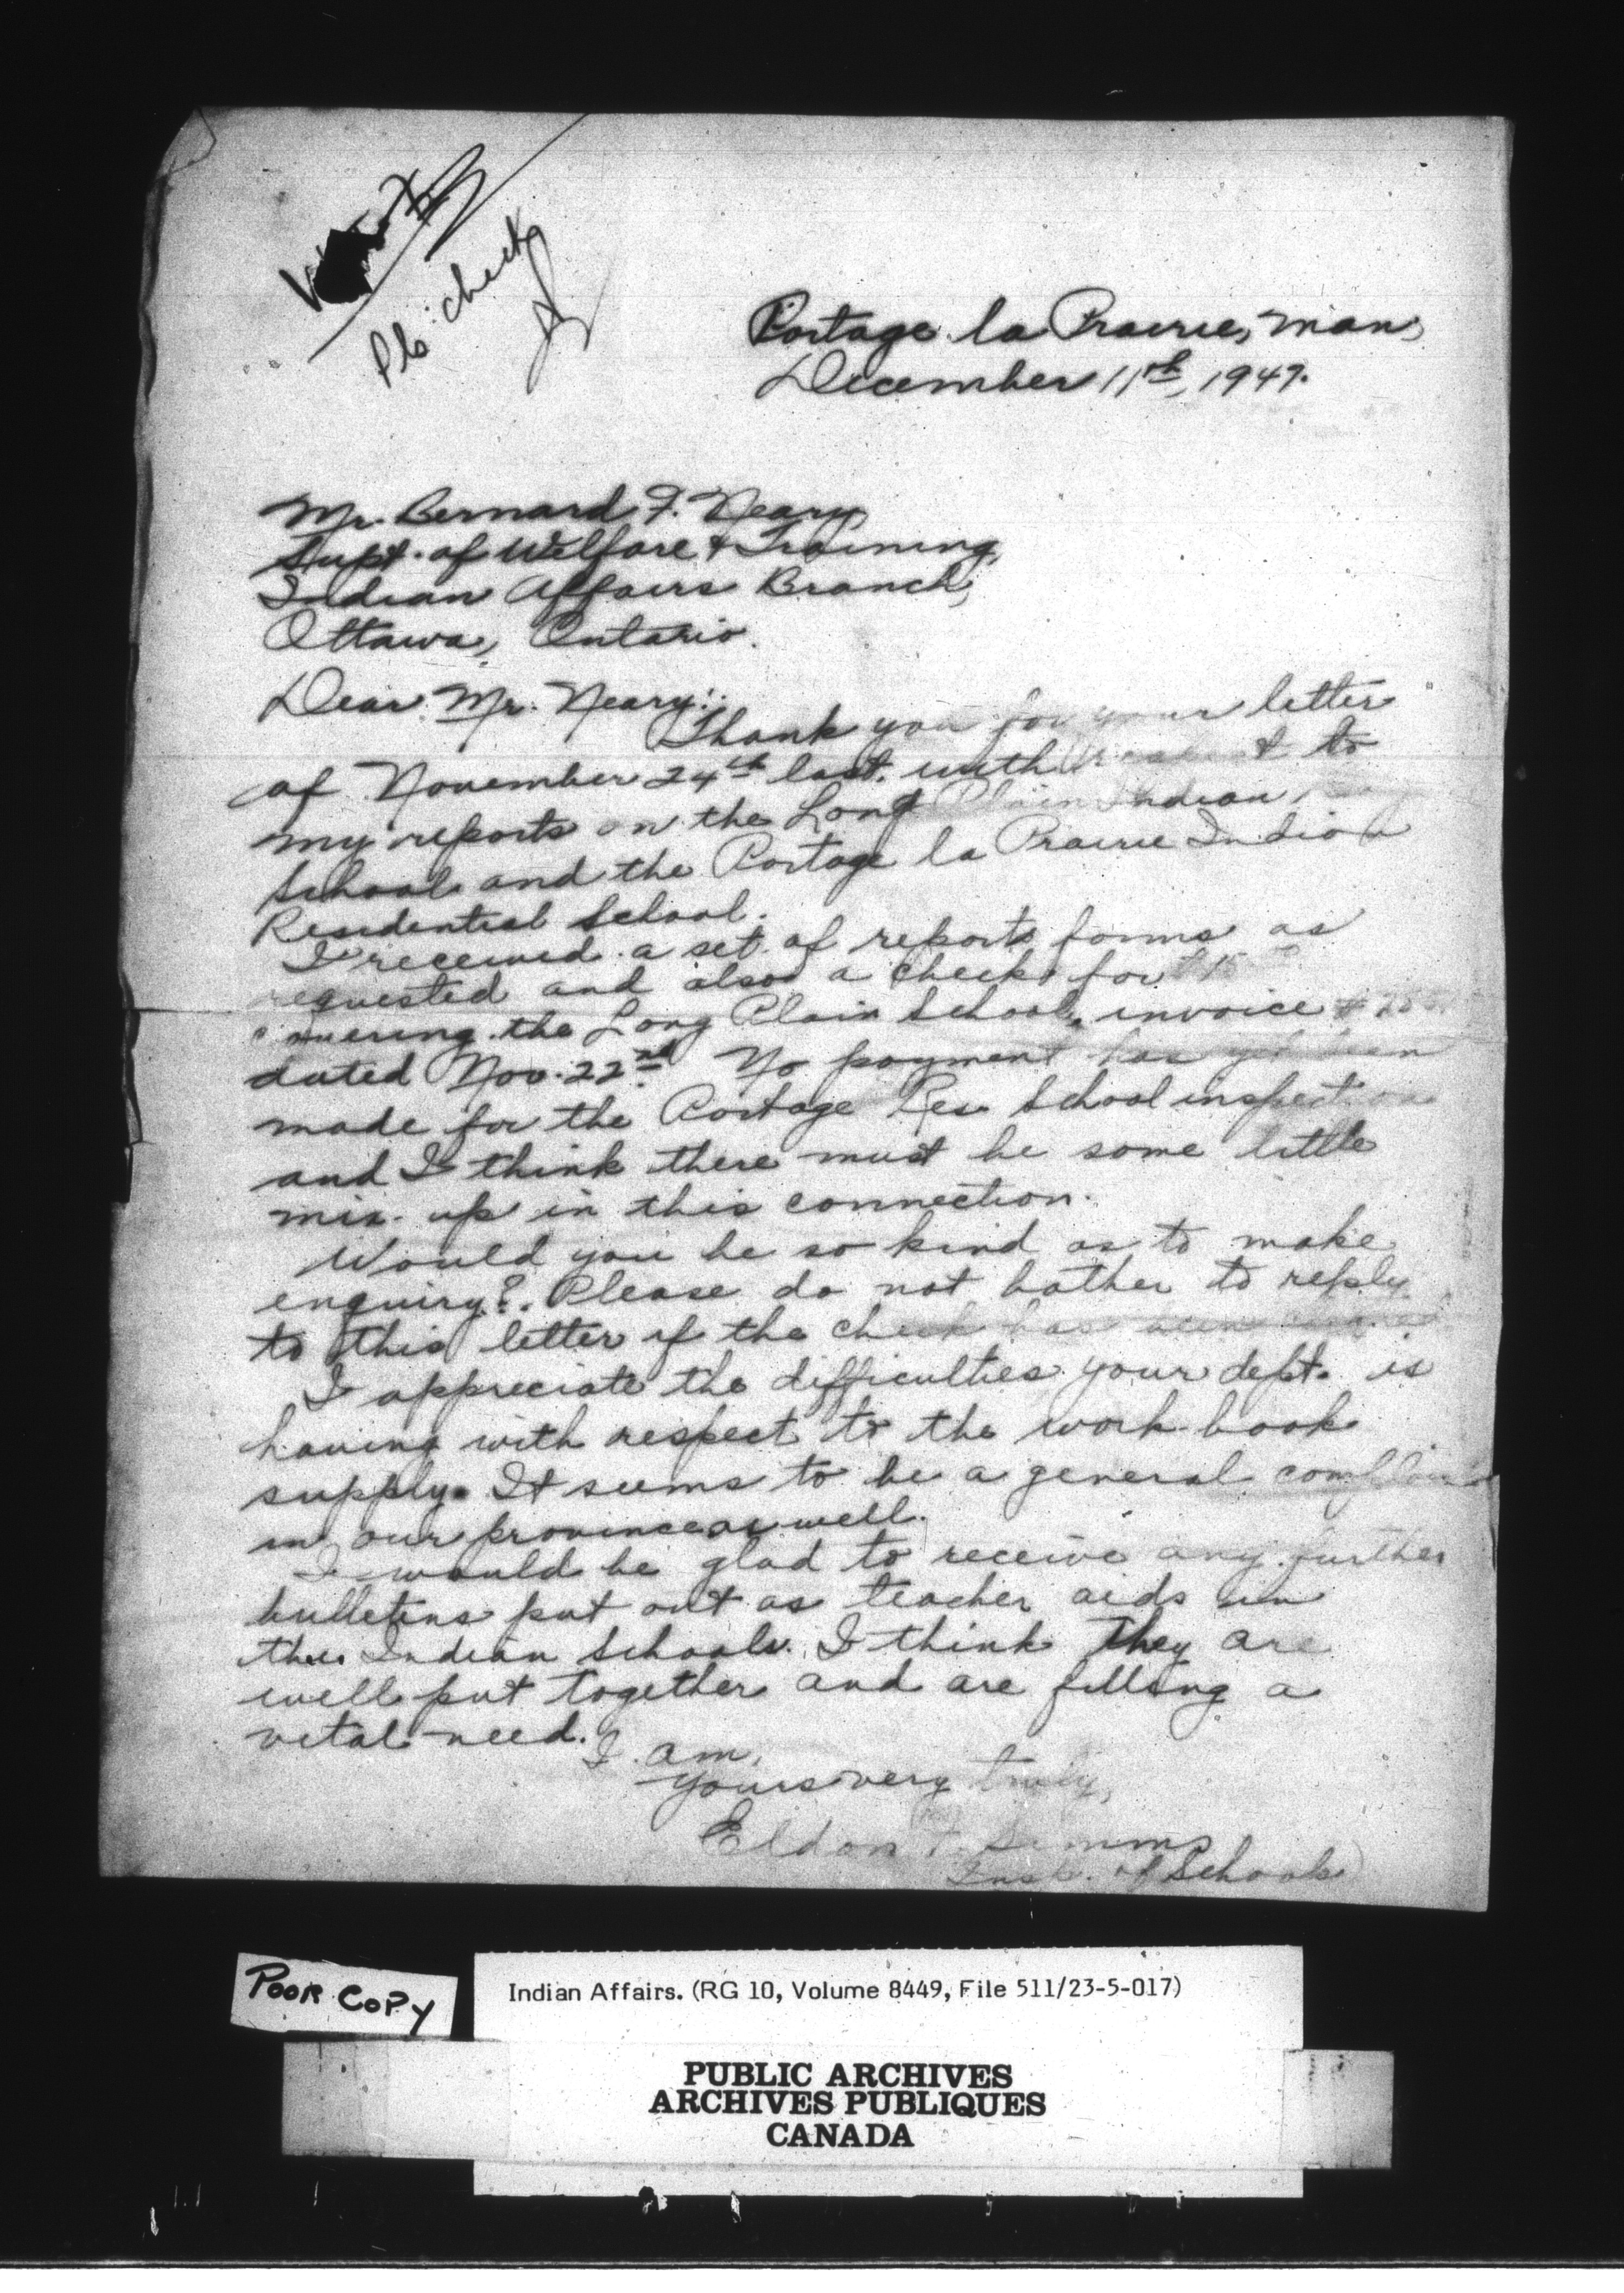 Pls. check
Portage la Prairie, Man,
December 11th, 1947.
Mr. Bernard F. Neary
Supt. of Welfare & Training,
Indian Affairs Branch,
Ottawa, Ontario.
Dear Mr. Neary:
Thank you for your letter
of November 24th last. with to
my reports on the Long Plain Indian
School and the Portage la Prairie Indian
Residential School.
I received a set of report forms as
requested and also a check for
covering the Long Plain School, invoice
dated Nov. 22nd. No payment has yet been
made for the Portage Res. School inspection
and I think there must be some little
mix-up in this connection.
Would you be so kind as to make
enquiry?. Please do not bother to reply
to this letter if the check has been
I appreciate the difficulties your dept. is
having with respect to the work-book
supply. It seems to be a general complaint
in our province as well.
I would be glad to receive any further
bulletins put out as teacher aids in
the Indian Schools. I think they are
well put together and are filling a
vital need.
I am,
Yours very truly,
Eldon Simms
Insp. of Schools
POOR COPY
Indian Affairs. (RG 10, Volume 8449, File 511/23-5-017)
PUBLIC ARCHIVES
ARCHIVES PUBLIQUES
CANADA